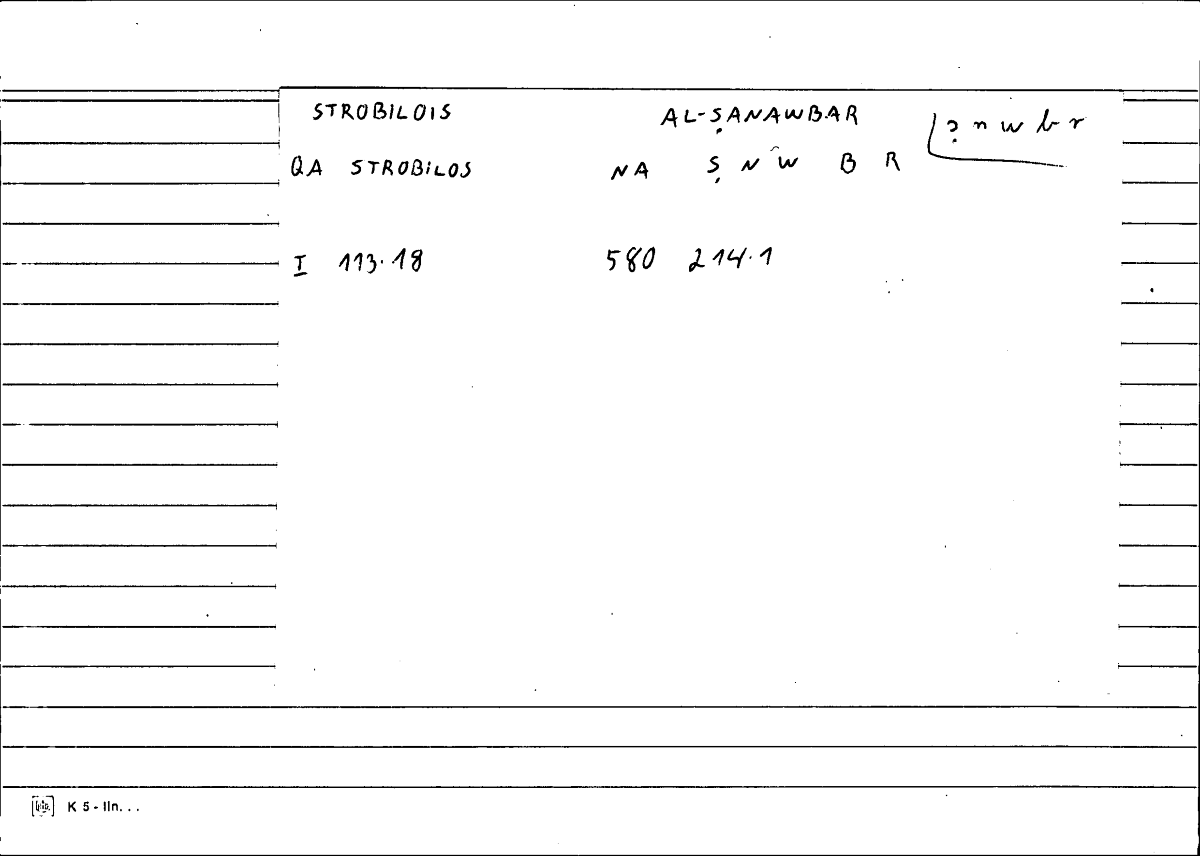 STROBILOIS AL-ṢANAWBAR ṣnwbr
QA STROBILOS NA Ṣ N W B R
I 113.18 580 214.1
K 5 - IIn...